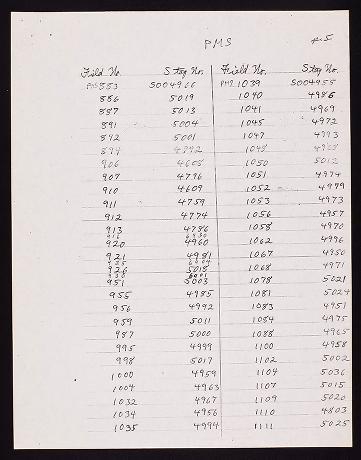 PMS #5
Field No. Stag No. Field No. Stag No.
PMS 883 S004966 PMS 1039 S004955
886 5019 1040 4986
887 5013 1041 4969
891 5004 1045 4972
892 5001 1047 4993
894 4992 1048
906 4608 1050 5012
907 4776 1051 4974
910 4609 1052 4979
911 4759 1053 4973
912 4774 1056 4957
913 4786 1058 4970
916
920 4960 1062 4996
921 4981 1067 4980
926 5018 1068 4971
951 5003 1078 5021
955 4985 1081 5024
956 4992 1083 4951
959 5011 1084 4975
987 5000 1088 4965
995 4999 1100 4958
998 5017 1102 5002
1000 4959 1104 5036
1004 4963 1107 5015
1032 4967 1109 5020
1034 4956 1110 4803
1035 4994 1111 5025